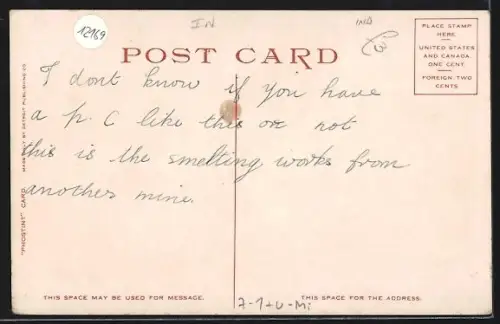 12169
IN
IND
POST CARD
PLACE STAMP
HERE.
UNITED STATES
AND CANADA.
ONE CENT.
FOREIGN-TWO
CENTS
I dont know if you have
a p. C like this or not
this is the smelting works from
another mine.
"PHOSTINT" CARD
MADE ONLY BY DETROIT PUBLISHING CO.
THIS SPACE MAY BE USED FOR MESSAGE.
THIS SPACE FOR THE ADDRESS.